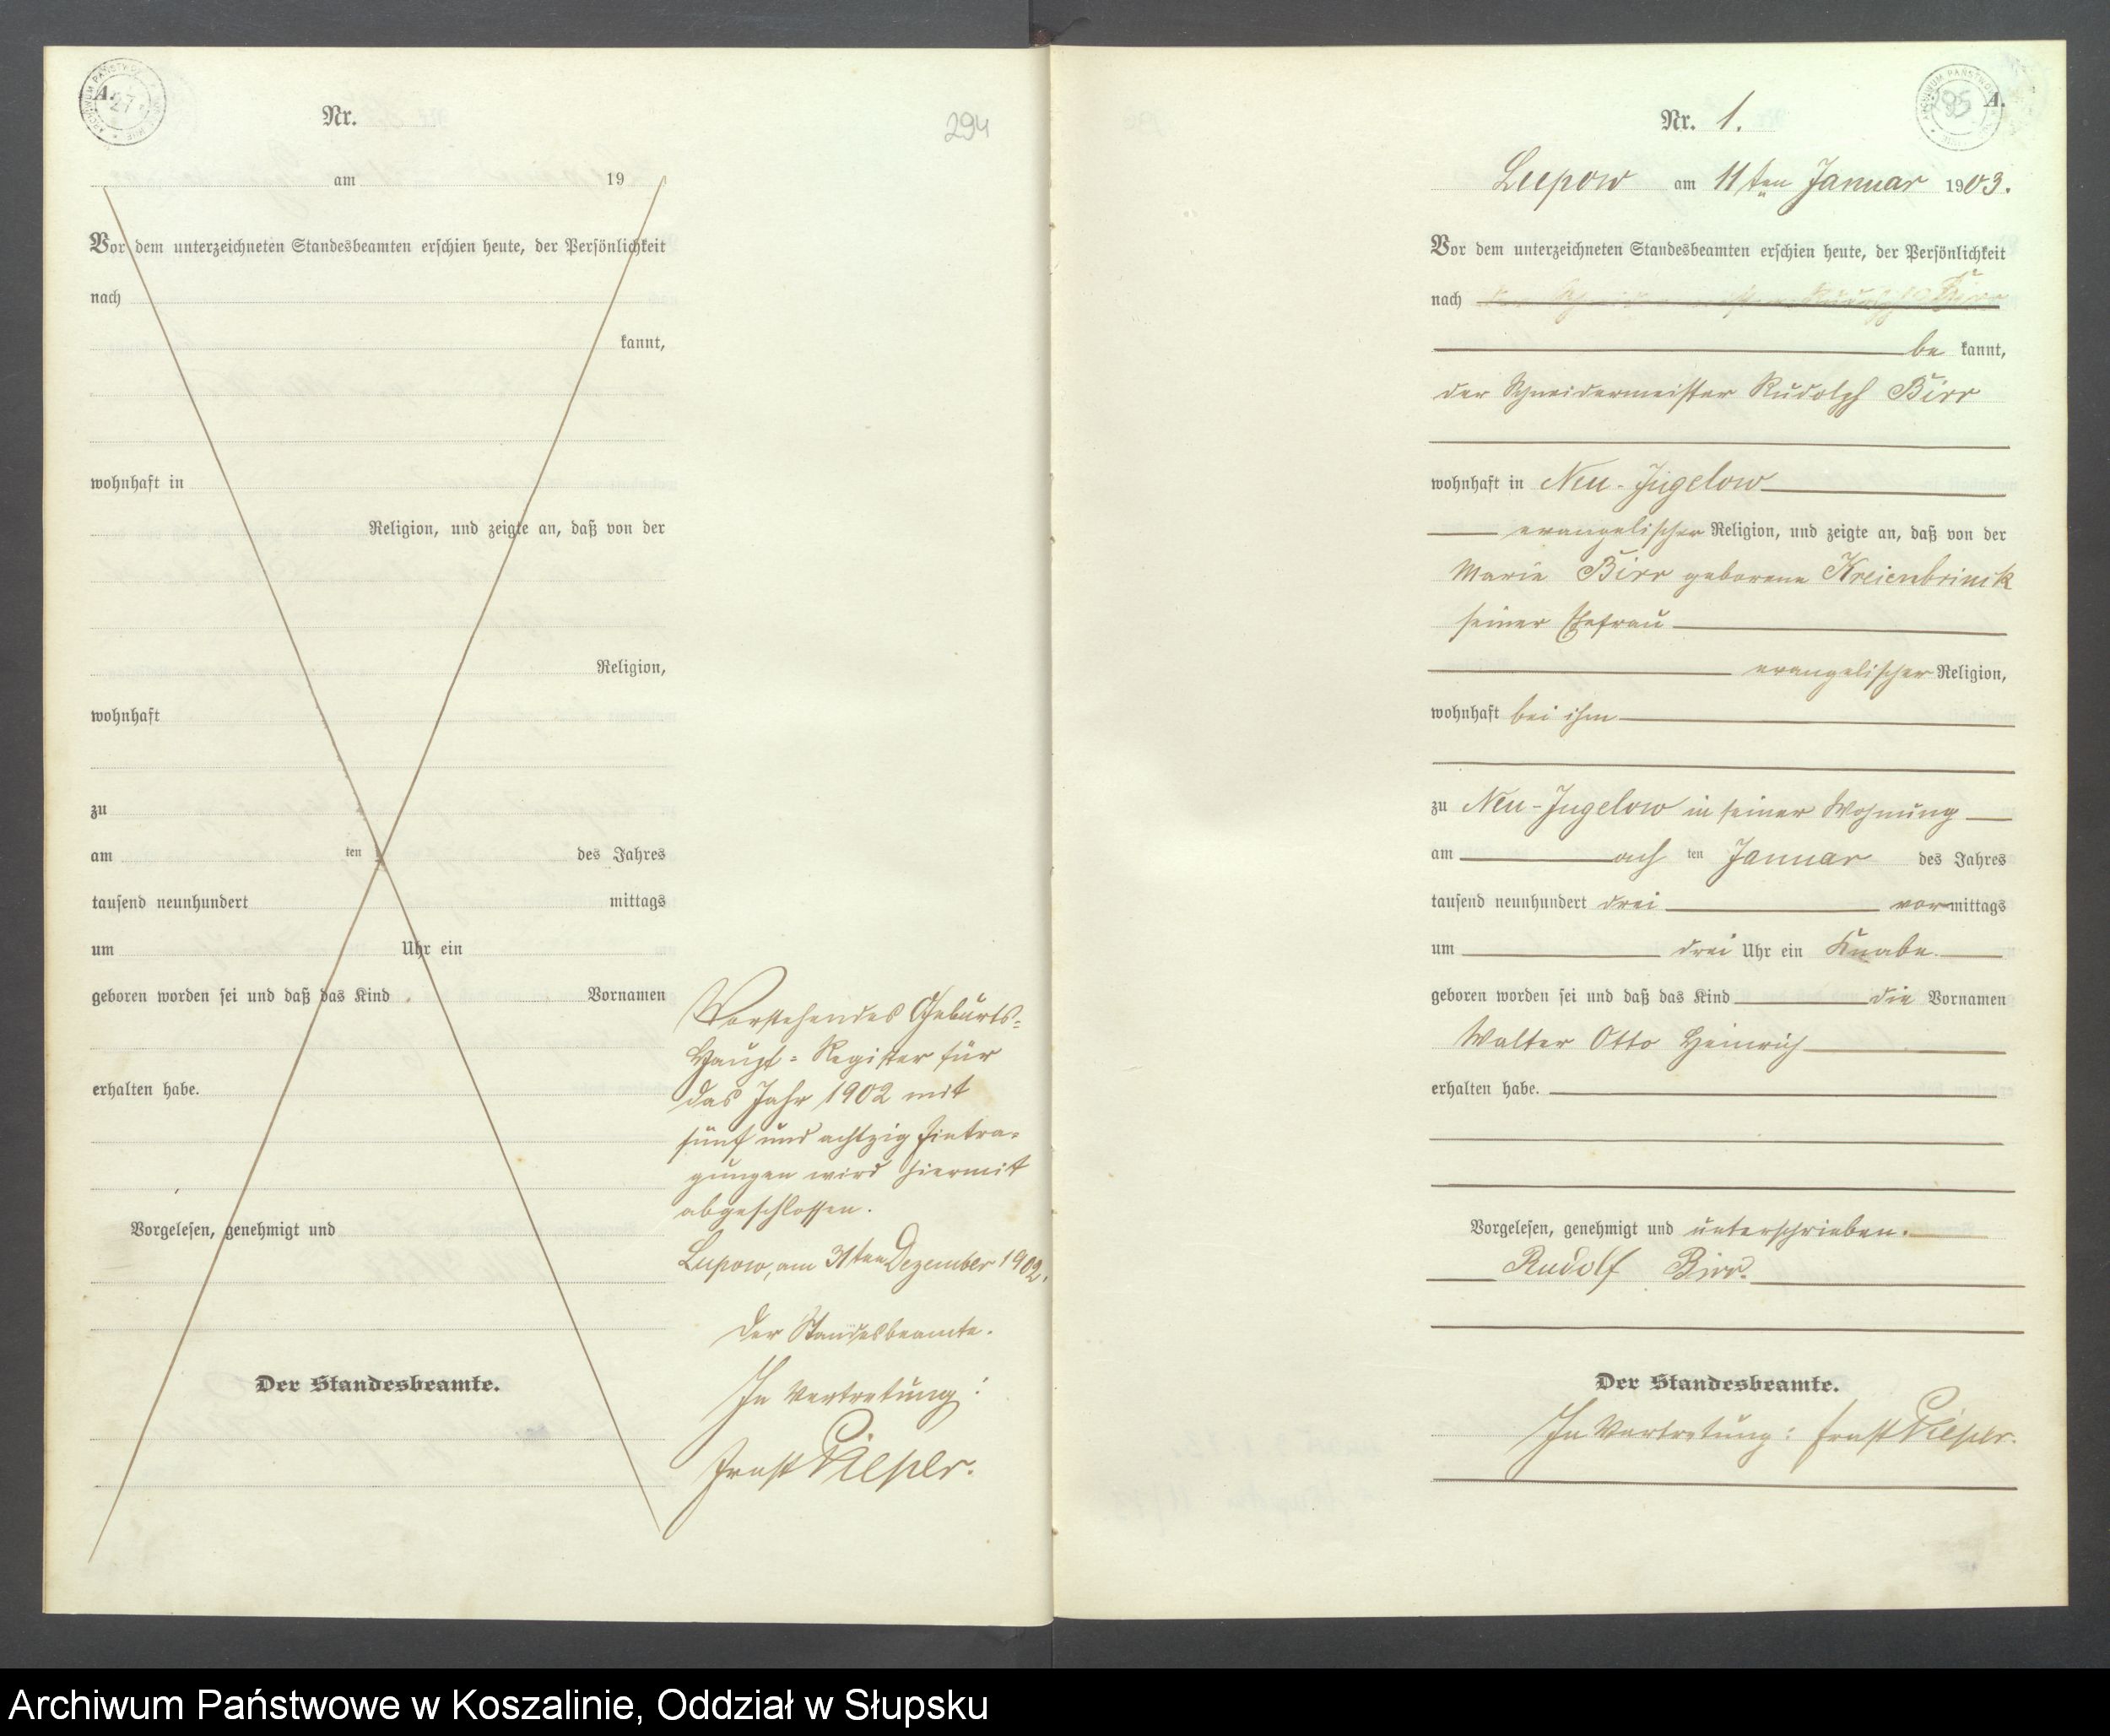 A.
Nr.
294
am 19
Vor dem unterzeichneten Standesbeamten erschien heute, der Persönlichkeit
nach
kannt,
wohnhaft in
Religion, und zeigte an, daß von der
Religion,
wohnhaft
zu
am ten des Jahres
tausend neunhundert mittags
um Uhr ein
geboren worden sei und daß das Kind Vornamen
erhalten habe.
Vorgelesen, genehmigt und
Der Standesbeamte.
Vorstehendes Geburts-
Haupt-Register für
das Jahr 1902 mit
fünf und achtzig Eintra-
gungen wird hiermit
abgeschlossen.
Lupow, am 31ten Dezember 1902.
Der Standesbeamte.
In Vertretung:
Ernst Pieper.
A.
Nr. 1.
Lupow am 11ten Januar 1903.
Vor dem unterzeichneten Standesbeamten erschien heute, der Persönlichkeit
nach
be kannt,
der Schneidermeister Rudolph Birr
wohnhaft in Neu-Jugelow
evangelischer Religion, und zeigte an, daß von der
Marie Birr geborene Kreienbrink
seiner Ehefrau
evangelischer Religion,
wohnhaft bei ihm
zu Neu-Jugelow in seiner Wohnung
am ach ten Januar des Jahres
tausend neunhundert drei vormittags
um drei Uhr ein Knabe.
geboren worden sei und daß das Kind die Vornamen
Walter Otto Heinrich
erhalten habe.
Vorgelesen, genehmigt und unterschrieben.
Rudolf Birr.
Der Standesbeamte.
In Vertretung: Ernst Pieper.
Archiwum Państwowe w Koszalinie, Oddział w Słupsku